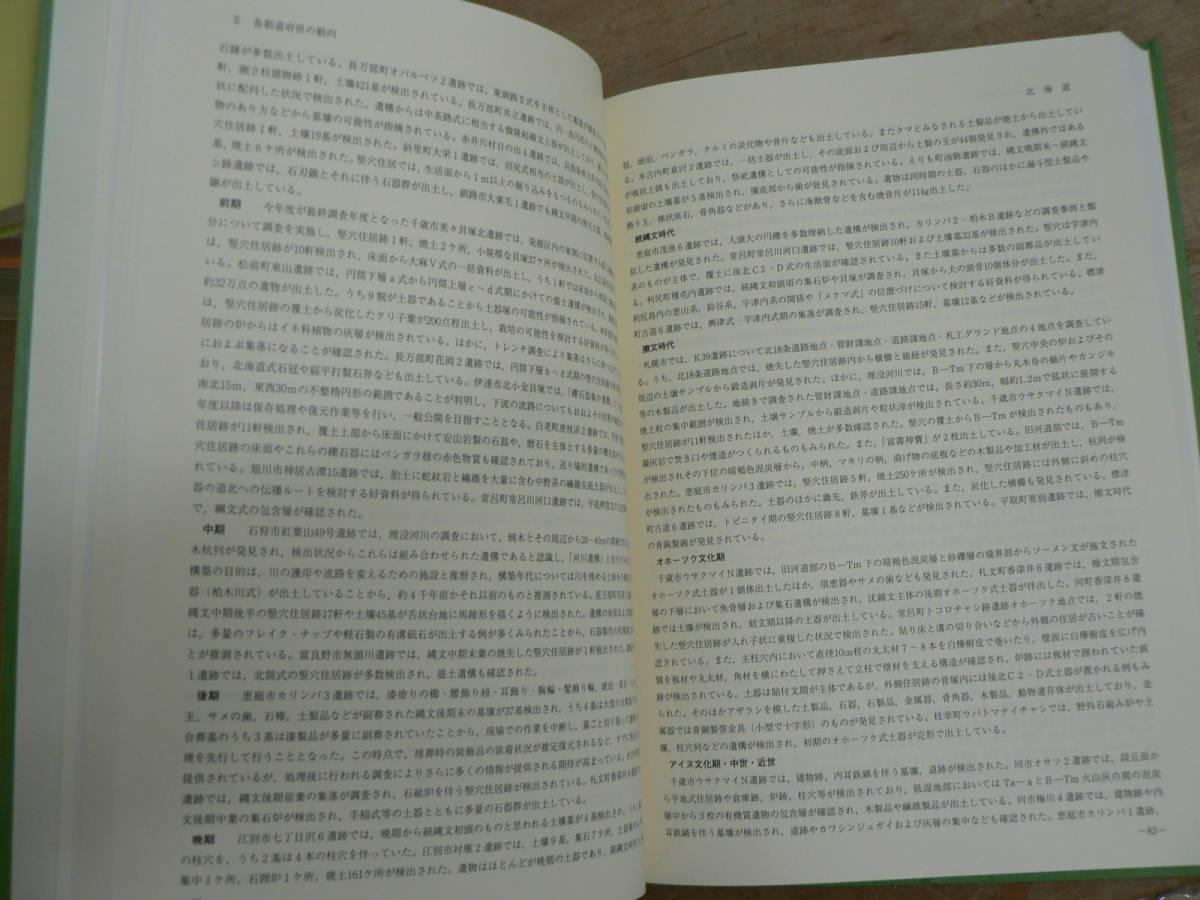 Ⅱ 各都道府県の動向
石錘が多数出土している。長万部町オバルベツ2遺跡では，東釧路Ⅱ式を主体とした
軒，掘立柱建物跡1軒，土壙421基が検出されている。長万部町共立遺跡では，
状に配列した状況で検出された。遺構からは中茶路式に相当する微隆起線文土器が出土しており，
物のあり方などから墓壙の可能性が指摘されている。赤井川村日の出4遺跡では，
穴住居跡1軒，土壙19基が検出された。斜里町大栄1遺跡では，沼尻式相当の土器が出土し，
墓，焼土6ケ所が検出された。竪穴住居では，生活面から1m以上の掘り込みをもつものもみられた。
シ跡遺跡では，石刃鏃とそれに伴う石器群が出土し，釧路市大楽毛1遺跡でも縄文早期の
前期 今年度が最終調査年度となった千歳市美々貝塚北遺跡では，発掘区内の東側に位置する
分について調査を実施し，竪穴住居跡1軒，焼土2ケ所，小規模な貝塚37ケ所が検出された。
は，竪穴住居跡が10軒検出され，床面から大麻Ⅴ式の一括資料が出土し，うち1軒では
る。松前町東山遺跡では，円筒下層a式から円筒上層c～d式期にかけての盛土遺構が
約32万点の遺物が出土した。うち9割が土器であることから土器塚の可能性が指摘されている。
は，竪穴住居跡の覆土から炭化したクリ子葉が200点程出土し，栽培の可能性を検討する好資料が
居跡の炉からはイネ科植物の灰層が検出されている。ほかに，トレンチ調査により集落はさらに
におよぶ集落になることが確認された。長万部町花岡2遺跡では，円筒下層b～d式期の竪穴住居跡
おり，北海道式石冠や扁平打製石斧なども出土している。伊達市北小金貝塚では，「礫石器集中
南北15m，東西30mの不整楕円形の範囲であることが判明し，下流の流路についてもおおよその位置が
年度以降は保存処理や復元作業等を行い，一般公開を目指すこととなる。白老町虎杖浜2遺跡では，
住居跡が11軒検出され，覆土上部から床面にかけて安山岩製の石皿や，磨石を主体とする多量の
穴住居跡の床面やこれらの礫石器にはベンガラ様の赤色物質も確認されており，送り場的遺構で
れている。旭川市神居古潭15遺跡では，胎土に蛇紋岩と繊維を大量に含む中野系の
器の道北への伝播ルートを検討する好資料が得られている。常呂町常呂川河口遺跡では，
で，綱文式の包含層が確認された。
中期 石狩市紅葉山49号遺跡では，埋没河川の調査において，倒木とその周辺から20～40㎝の間隔で
木杭列が発見され，検出状況からこれらは組み合わせられた遺構であると認識し，「河川遺構」と
構築の目的は，川の護岸や流路を変えるための施設と推察され，構築年代については川を埋める土砂
器（柏木川式）が出土していることから，約4千年前かそれ以前のものと推測されている。長万部町
縄文中期後半の竪穴住居跡17軒や土壙45基が舌状台地に馬蹄形を描くように検出された。
は，多量のフレイク・チップや軽石製の有溝砥石が出土する例が多くみられたことから，石器製作の
とが推測されている。富良野市無頭川遺跡では，縄文中期末葉の焼失した竪穴住居跡が1軒検出された。
1遺跡では，北筒式の竪穴住居跡が多数検出され，盛土遺構も確認された。
後期 恵庭市カリンバ3遺跡では，漆塗りの櫛・腰飾り紐・耳飾り・腕輪・髪飾り輪，琥珀
玉，サメの歯，石棒，土製品などが副葬された縄文後期末の墓壙が37基検出され，うち4基は大型の
合葬墓のうち3基は漆製品が多量に副葬されていたことから，現場での作業を中断し，墓ごと切り取って
理を先行して行うこととなった。この時点で，埋葬時の装飾品の装着状況が推定復元されるなど，すでに
提供されているが，処理後に行われる調査によりさらに多くの情報が提供される期待が高まっている。
では，縄文後期前葉の集落が調査され，石組炉を伴う竪穴住居跡が検出されている。礼文町香深井
文後期中葉の集石炉が検出され，手稲式等の土器とともに多量の石器群が出土している。
晩期 江別市七丁目沢6遺跡では，晩期から続縄文初頭のものと思われる土壙墓が4基検出され，
の柱穴を，うち2基は4本の柱穴を伴っていた。江別市対雁2遺跡では，土壙9基，集石7ケ所，
集中1ケ所，石囲炉1ケ所，焼土161ケ所が検出された。遺物はほとんどが晩期の土器であり，続縄文
北海道
器，琥珀，ベンガラ，クルミの炭化物や骨片なども出土している。またクマとみなされる土製品が焼土から出土してい
る。木古内町泉沢2遺跡では，一括土器が出土し，その底面および周辺から土製の玉が44個発見され，遺構外ではある
が板状土偶も出土しており，祭祀遺構としての可能性が指摘されている。えりも町油駒遺跡では，縄文晩期末～続縄文
初頭頃の土壙が5基検出され，壙底部から歯が発見されている。遺物は同時期の土器，石器のほかに漏斗型土製品や
飾り玉，棒状原石，骨角器などがあり，さらに海獣骨などを含む焼骨片が11㎏出土した。
続縄文時代
恵庭市茂漁6遺跡では，人頭大の円礫を多数埋納した遺構が検出され，カリンバ2・柏木B遺跡などの調査事例と類
似した遺構が発見された。常呂町常呂川河口遺跡では，竪穴住居跡10軒および土壙墓32基が検出された。竪穴は宇津内
系のものが主体で，覆土に後北C2・D式の生活面が確認されている。また土壙墓からは多数の副葬品が出土してい
る。利尻町種屯内遺跡では，続縄文初頭頃の集石炉や貝塚が調査され，貝塚から犬の頭骨10個体分が出土した。また，
利尻島内の恵山系，鈴谷系，宇津内系の関係や「メクマ式」の位置づけについて検討する好資料が得られている。標津
町古道6遺跡では，興津式・宇津内式期の集落が調査され，竪穴住居跡15軒，墓壙12基などが検出されている。
擦文時代
札幌市では，K39遺跡について北18条道路地点・管財課地点・道路課地点・札工グランド地点の4地点を調査してい
る。うち，北18条道路地点では，焼失した竪穴住居跡内から横櫛と組紐が発見された。また，竪穴中央の炉およびその
周辺の土壌サンプルから鍛造剥片が発見された。ほかに，埋没河川では，B―Tm下の層から丸木舟の舳片やカンジキ
等の木製品が出土した。地続きで調査された管財課地点・道路課地点では，長さ約30m，幅約1.2mで弧状に展開する
焼土粒の集中範囲が検出され，土壌サンプルから鍛造剥片や粒状滓が検出されている。千歳市ウサクマイN遺跡では，
竪穴住居跡が11軒検出されたほか，土壙，焼土が多数確認された。竪穴の覆土からB―Tmが検出されたものもあり，
凝灰岩で焚き口や煙道がつくられるものもみられた。また，「富壽神寳」が2枚出土している。旧河道部では，B―Tm
が検出されその下位の暗褐色泥炭層から，中柄，マキリの柄，曲げ物の底板などの木製品や加工材が出土し，杭列が検
出された。恵庭市カリンバ3遺跡では，竪穴住居跡5軒，焼土250ケ所が検出され，竪穴住居跡には外側に斜めの柱穴
が検出されたものもみられた。土器のほかに鋤先，鉄斧が出土している。また，炭化した横櫛も発見されている。標津
町古道6遺跡では，トビニタイ期の竪穴住居跡8軒，墓壙1基などが検出されている。平取町亜別遺跡では，擦文時代
の青銅製鋺が発見されている。
オホーツク文化期
千歳市ウサクマイN遺跡では，旧河道部のB―Tm下の暗褐色泥炭層と砂礫層の境界部からソーメン文が施文された
オホーツク式土器が1個体出土したほか，須恵器やサメの歯なども発見された。礼文町香深井6遺跡では，擦文期包含
層の下層において魚骨層および集石遺構が検出され，沈線文主体の後期オホーツク式土器が伴出した。同町香深井8遺
跡では土壙が検出され，刻文期以降の土器が出土している。常呂町トコロチャシ跡遺跡オホーツク地点では，2軒の焼
失した竪穴住居跡が入れ子状に重複した状況で検出された。貼り床と溝の切り合いなどから外側の住居が古いことが確
認された。また，主柱穴内において直径10㎝程の丸太材7～8本を白樺樹皮で巻いたり，壁面に白樺樹皮を広げ内
側を板材や丸太材，角材を横にわたして押さえて立柱で壁材を支える構造が確認され，炉跡には板材で囲われた痕
跡が検出されている。土器は貼付文期が主体であるが，外側住居跡の骨塚内には後北C2・D式土器が置かれる例もみ
られた。そのほかアザラシを模した土製品，石器，石製品，金属器，骨角器，木製品，動物遺存体が出土しており，金
属器では青銅製帯金具（小型で十字形）のものが発見されている。枝幸町ウバトマナイチャシでは，野外石組み炉や土
壙，柱穴列などの遺構が検出され，初期のオホーツク式土器が完形で出土している。
アイヌ文化期・中世・近世
千歳市ウサクマイN遺跡では，建物跡，内耳鉄鍋を伴う墓壙，道跡が検出された。同市オサツ2遺跡では，段丘面か
ら平地式住居跡や倉庫跡，炉跡，柱穴等が検出されており，低湿地部においてはTa―aとB―Tm火山灰の間の泥炭
層中から3枚の有機質遺物の包含層が確認され，木製品や繊維製品が出土している。同市梅川4遺跡では，建物跡や内
耳鉄鍋を伴う墓壙が検出され，道跡やカワシンジュガイおよび灰層の集中なども確認された。恵庭市カリンバ1遺跡，
―83―